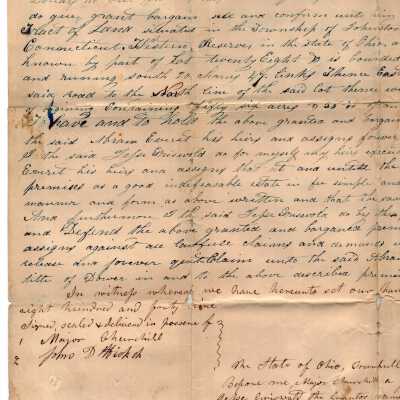 do give grant bargain sell and confirm unto him
Tract of Land situated in the Township of Johnston
Connecticut Western Reserve in the State of Ohio a
known by part of Lot twenty Eight & is bounded
and running south 20 chains 47 links Thence East
said road to the North line of the said lot thence w
of beginning Containing fifty six acres
To have and to hold the above granted and bargain
the said Abram Everit his heirs and assigns forever
I the said Jesse Griswold do for myself my heirs execu
Everit his heirs and assigns that at and untill the
premises as a good indefeasable estate in fee simple and
manner and form as above written and that the sam
And furthermore I the said Jesse Griswold do by thes
and Defend the above granted and bargained prem
assigns against all lawfull claims and demands w
release and forever quit Claim unto the said Abra
title of Dower in and to the above described premis
In witness whereof we have hereunto set our han
eight hundred and forty nine
Signed, sealed & delivered in presence of
1 Major Churchill
2 John D
The State of Ohio, Trumbull
Before me Major Churchill a